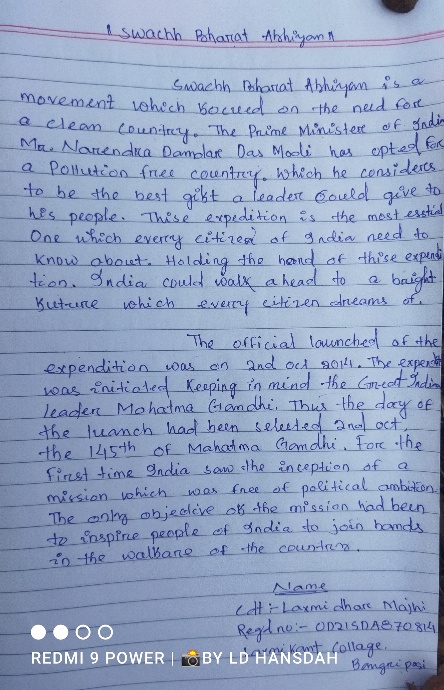 " Swachh Bharat Abhiyan "
Swachh Bharat Abhiyan is a
movement which Focused on the need fore
a clean country. The Prime Minister of India
Mr. Narendra Damolare Das Modi has opted for
a Pollution free country. Which he considers
to be the best gift a leader Could give to
his people. These expedition is the most
One which every citizen of India need to
Know about. Holding the hand of these expendi
tion. India could walk ahead to a baight
Future which every citizen dreams of.
The official launched of the
expendition was on 2nd oct 2014. The
was initiated Keeping in mind the Great Indian
leader Mohatma Gandhi. Thus the day of
the luanch had been selected 2nd oct,
the 145th of Mahatma Gandhi. Fore the
first time India saw the inception of a
mission which was free of political ambition.
The only objective of the mission had been
to inspire people of India to join hands
in the walbare of the country.
Name
Laxmidhar Majhi
Regd no:- OD21SDAB70814
Laxmikant Collage.
Bangriposi
REDMI 9 POWER | BY LD HANSDAH